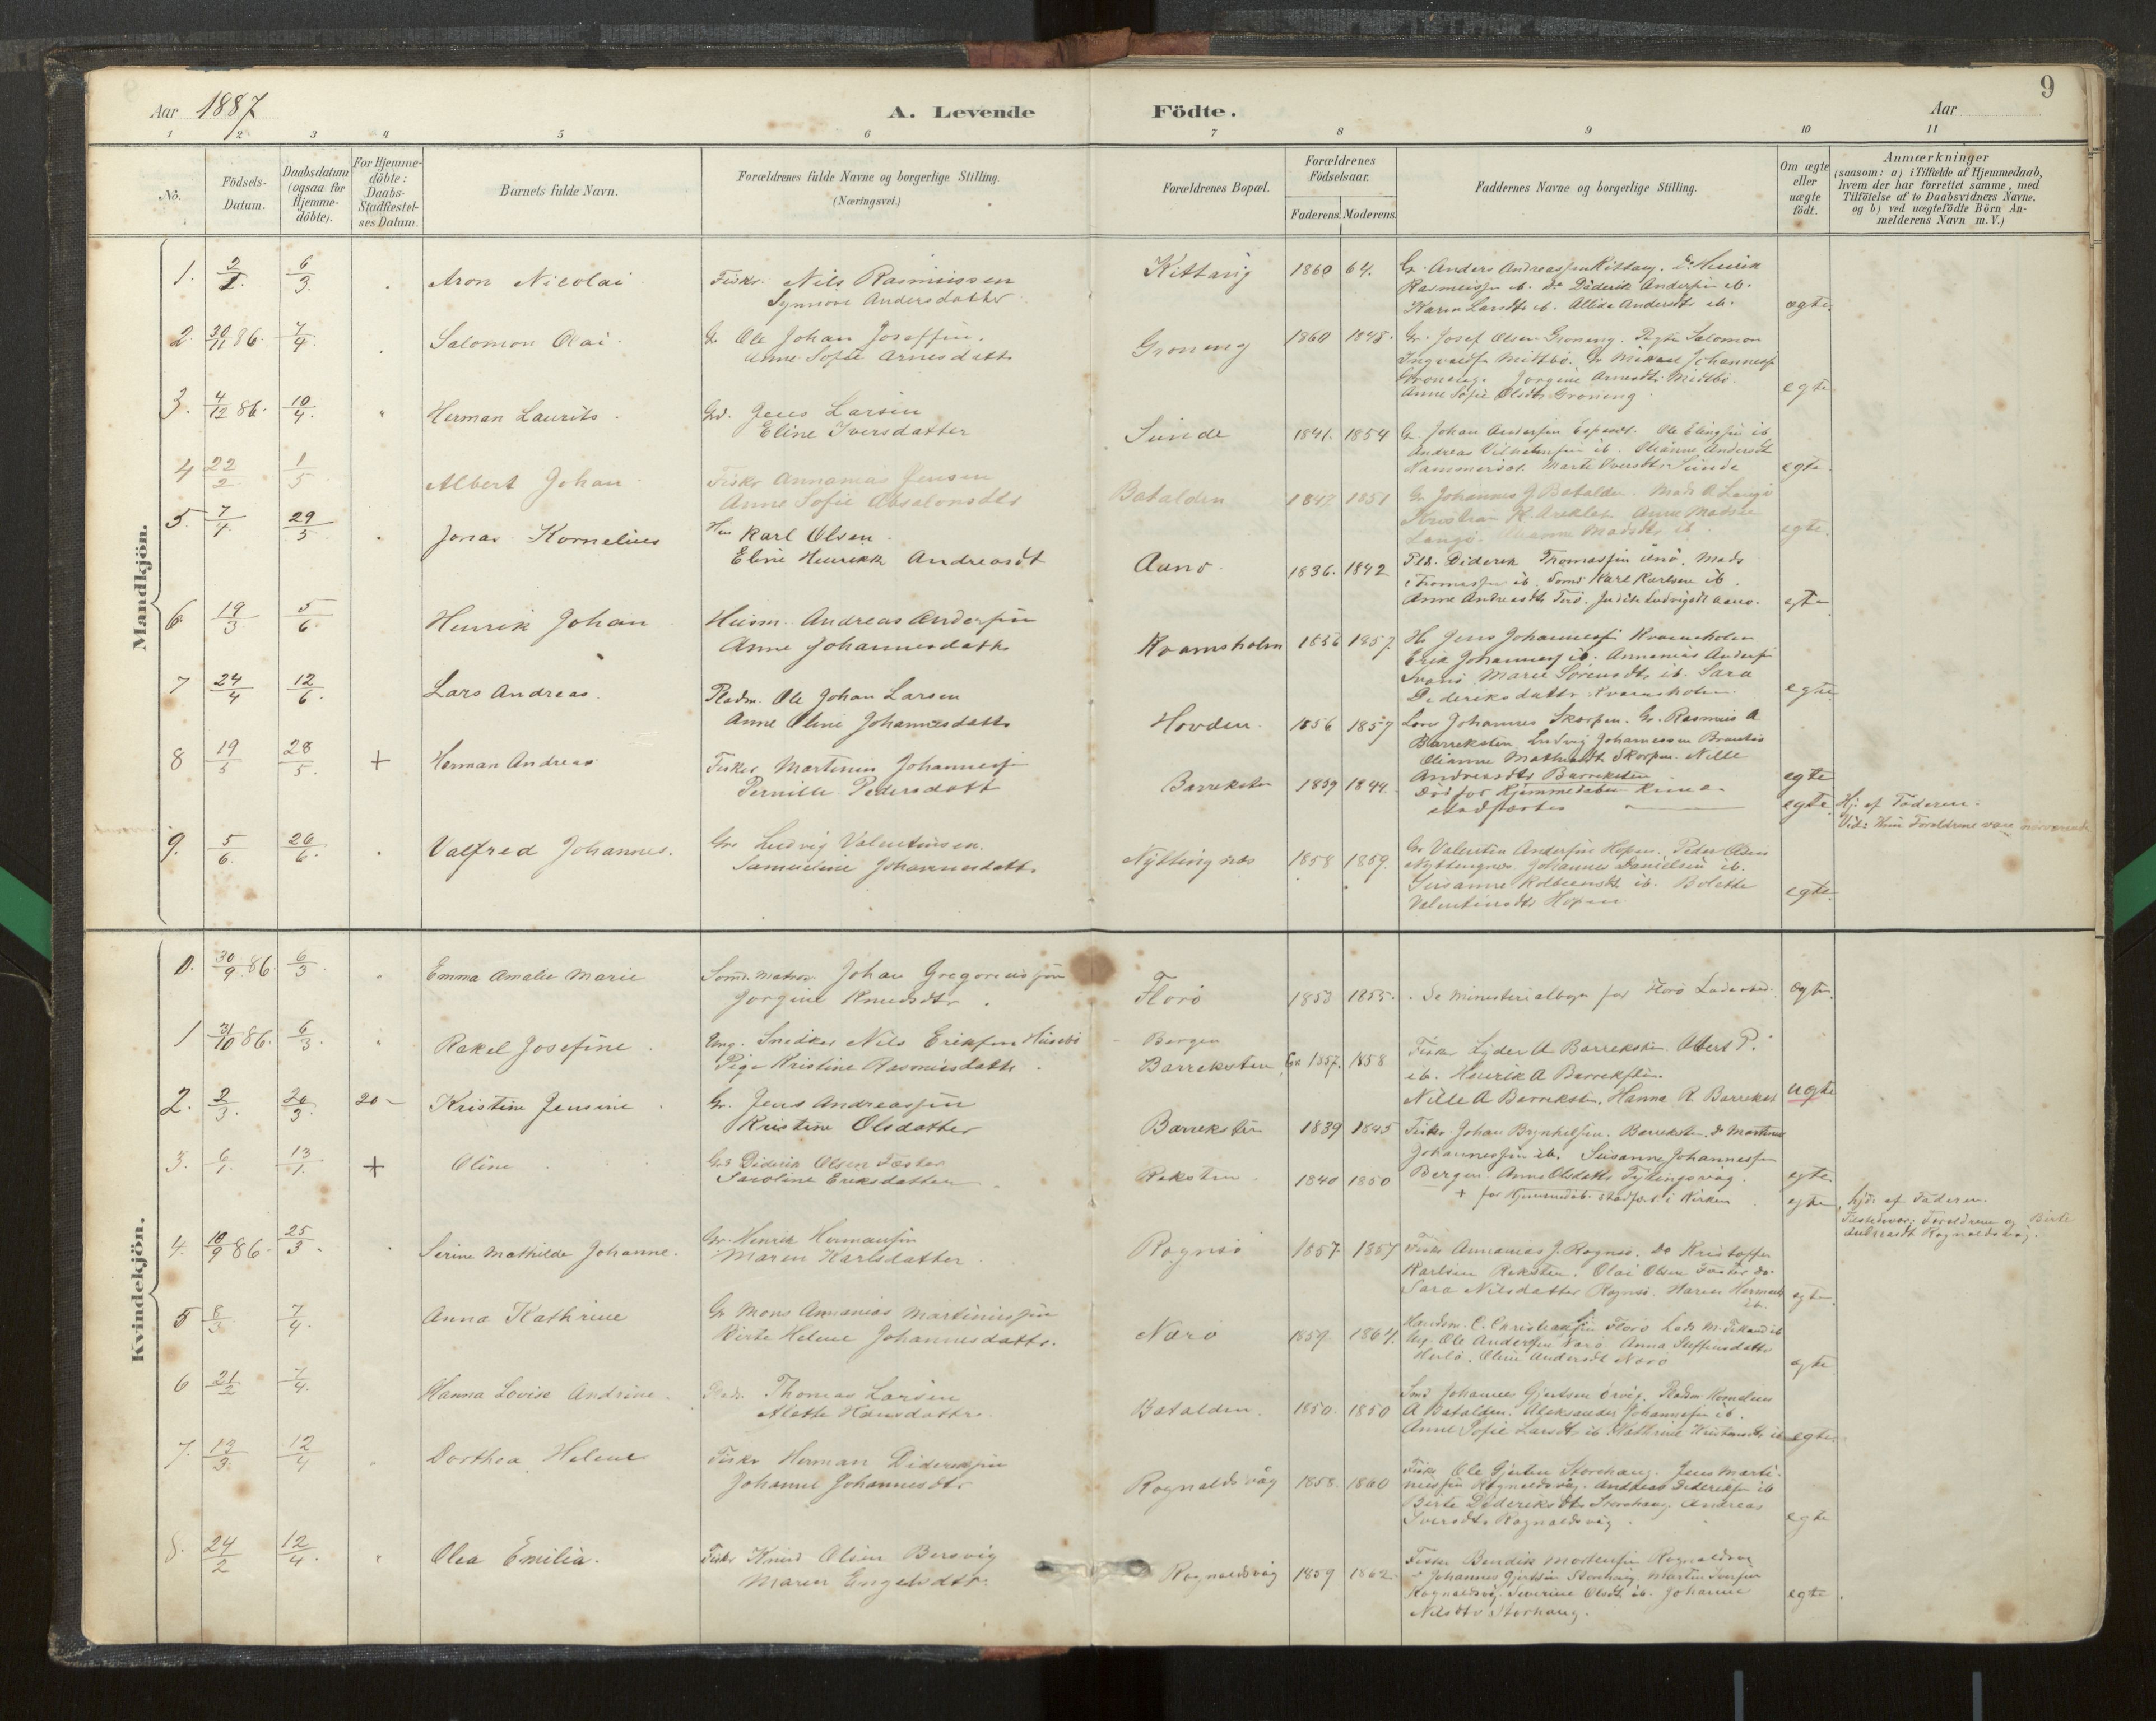 9
Aar 1887
A. Levende Födte.
Aar
1 2 3 4 5 6 7 8 9 10 11
No.
Födsels-Datum.
Daabsdatum (ogsaa for Hjemme-döbte).
For Hjemme-döbte: Daabs-Stadfæstel-ses Datum.
Barnets fulde Navn.
Forældrenes fulde Navne og borgerlige Stilling. (Næringsvei.)
Forældrenes Bopæl.
Forældrenes Födselsaar.
Faderens. Moderens.
Faddernes Navne og borgerlige Stilling.
Om ægte eller uægte født.
Anmærkninger
(saasom: a) i Tilfælde af Hjemmedaab,
hvem der har forrettet samme, med
Tilföielse af to Daabsvidners Navne,
og b) ved uægtefödte Börn An-
melderens Navn m. V.)
Mandkjön.
1. 2/1. 6/3 Aron Nicolai
Fisker. Nils Rasmussen
Synnove Andersdatter
Kittang 1860 64.
G. Anders Andreassen Kittang. Do Henrik
Rasmussen ib. Do Diderik Andersen ib.
Karen Larsdtr ib. Allida Andersdtr ib.
ægte.
2. 30/11 86. 7/4. Salomon Olai
G. Ole Johan Joseffsen.
Anne Sofie Arnesdattr
Groneng 1860 1848.
Gr. Josef Olsen Groneng. Salomon
Ingvaldsen Midtbö. Gr Mikael Johannesse
Groneng. Jorgine Arnesdtr Midtbö.
Anne Sofie Olsdtr Groneng.
egte
3. 4/12 86. 10/4. Herman Laurits
Grd. Jens Larsen
Eline Iversdatter
Sunde 1841. 1854
G. Johan Andersen Espeset. Ole Elingsen ib
Andreas Vilhelmsen ib. Olianne Andersdt
Hammersæt. Marte Iversdtr Sunde
egte
4 22/2 1/5 Albert Johan
Fisker Annanias Jensen
Anne Sofie Absalonsdtr
Batalden 1847 1851
Gr Johannes J Batalden. Mads A Langö
Kristian K. Areklet Anne Madsdtr
Langö. Madsdtr ib.
egte.
5 7/4. 29/5 Jonas Kornelius
Hus Karl Olsen
Eline Henrikke Andreasdt
Aanö. 1836. 1842
Pldr. Diderik Thomassen Unö. Mads
Thomassen ib. Karl Karlsen ib.
Anne Andreasdtr Terö. Judith Ludvigsdt Aanö.
egte
6 19/3 5/6. Henrik Johan
Husm. Andreas Andersen
Anne Johannesdattr
Kvamsholm 1836 1857.
Hs Jens Johannessen Kvamsholm
Erik Johanness ib. Annanias Anders
Svanö. Marie Sörensdtr ib. Sara
Dideriksdattr Kvamsholm.
egte
7 24/4 12/6. Lars Andreas
Pladsm. Ole Johan Larsen
Anne Oline Johannesdattr
Hovden. 1856 1857
Lars Johannes Skorpen. Gr. Rasmus A
Barreksten Ludvig Johannessen Brantsö
Olianne Mathiasdt Skorpen. Nille
Andreasdtr Barreksten
egte
8 19/5 28/5. + Herman Andreas
Fisker Martinus Johannesse
Pernille Pedersdatt
Barreksten 1839 1844
Död för Hjemmedaben kunde
stadfæstes
egte.
Hj: af Faderen.
Vid: Kun Forældrene vare nærværende
9. 5/6. 26/6. Valfred Johannes.
Gr. Ludvig Valentinsen.
Samueline Johannesdattr
Nyttingnæs 1858 1859.
Gr Valentin Andersen Hopen. Peder Olsen
Nyttingnes. Johannes Danielsen ib.
Susanne Kolbeensdt ib. Bolette
Valentinsdtr Hopen
egte.
Kvindekjön.
0. 30/9 86. 6/3 Emma Amalie Marie
Sömd. Matros Johan Gregoriussen
Jorgine Knudsdtr.
Florö 1853 1855.
Se ministerialbogen for Florö Ladested.
ægte.
1 31/10 86. 6/3. Rakel Josefine
Ung. Snedker Nils Eriksen Husebö
Pige Kristine Rasmusdattr
Bergen
Barreksten Ca 1857. 1858
Fisker Lyder A Barreksten. Albert P.
ib. Henrik A Barreksten.
Nille A Barreksten. Hanna R. Barrekst
uegte
2. 2/3. 20/3. 20 - Kristine Jensine
Gr. Jens Andreassen
Kristine Olsdatter
Barreksten 1839 1845
Fisker Johan Brynhelsen. Barreksten. Do Martinus
Johannessen ib. Susanne Johannessen
Bergen. Anne Olsdattr Tytingsvåg.
egte.
3. 6/1. 13/1. + Oline
Grd Diderik Olsen Föster
Saroline Eriksdatter
Reksten 1840 1850
+ for Hjemmedab. stadfæst. i Kirken
egte
hjd: af Faderen.
Tilstedevær: Forældrene og Birte
Rognaldsvåg.
4. 10/9 86. 25/3. Serine Mathilde Johanne.
Gr. Henrik Hermansen
Maren Karlsdatter
Rognsö 1857. 1857
Fisker Annanias J. Rognsö. Do Kristoffer
Karlsen Reksten. Olai Olsen Föster do.
Sara Nilsdatter Rognsö. Maren Hermansdt
ib.
egte.
5 8/3. 7/4. Anna Kathrine
Gr Mons Annanias Martinussen
Birte Helene Johannesdattr.
Nærö 1859. 1864.
Handsm. C. Christiansen Florö Lods M. ib
Ung. Ole Andersen Narö Anna Steffensdattr
Herlö. Oline Andersdt Nærö
egte
6 21/2 7/4. Hanna Lovise Andrine
Plads. Thomas Larsen
Alette Hansdattr
Batalden. 1850. 1850
Johannes Gjertsen Örvig. Pladsm Kornelius
A Batalden. Aleksander Johannessen ib.
Anne Sofie Larsdtr ib. Kathrine Kristensdtr ib
egte.
7. 13/3. 12/4 Dorthea Helene
Fisker Herman Dideriksen
Johanne Johannesdtr
Rognaldsvåg 1858. 1860
Fisker Ole Gjertsen Storehaug. Jens Marti-
nussen Rognaldsvåg. Andreas Dideriksen ib
Birte Dideriksdtr Storehaug. Andrea
Iversdtr Rognaldsvåg.
egte
8. 24/2 12/4. Olea Emilia.
Fisker Knud Olsen Bersvig
Maren Engelsdtr.
Rognaldsvåg 1859 1862.
Fisker Bendik Mortensen Rognaldsvg
Johannes Gjertsen Storehaug. Martin Iversen
Rognaldsvåg. Severine Olsdt ib. Johanne
Nilsdtr Storhaug.
egte